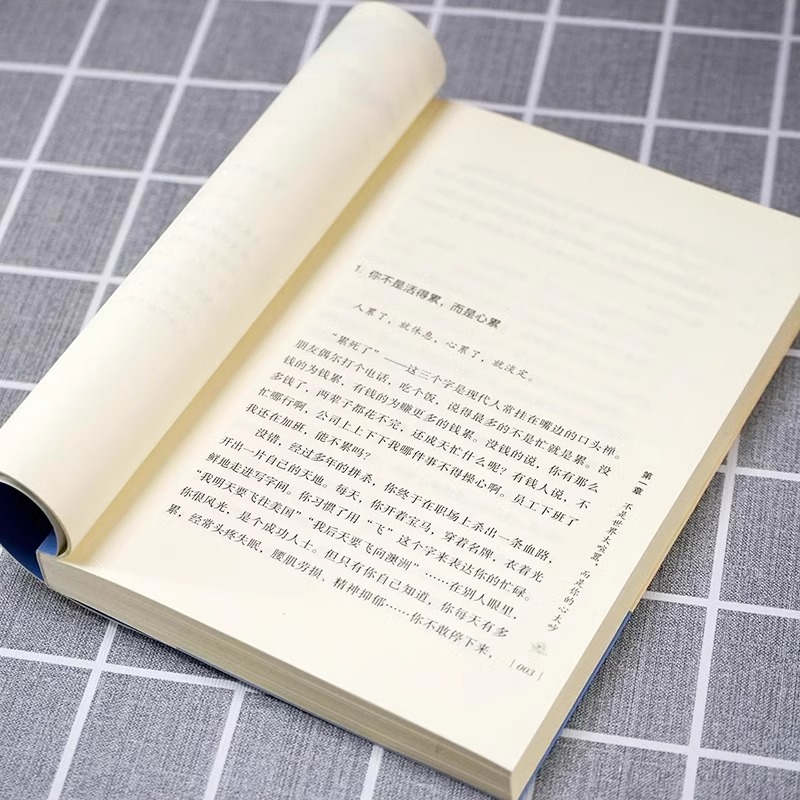 1. 你不是活得累，而是心累
人累了，就休息，心累了，就淡定。
“累死了”——这三个字是现代人常挂在嘴边的口头禅。
朋友偶尔打个电话，吃个饭，说得最多的不是忙就是累。没
钱的为钱累，有钱的为赚更多的钱累。没钱的说，你有那么
多钱了，两辈子都花不完，还成天忙什么呢？有钱人说，不
忙哪行啊，公司上上下下我哪件事不得操心啊。员工下班了
我还在加班，能不累吗？
没错，经过多年的拼杀，你终于在职场上杀出一条血路，
开出一片自己的天地。每天，你开着宝马，穿着名牌，衣着光
鲜地走进写字间。你习惯了用“飞”这个字来表达你的忙碌。
“我明天要飞往美国”“我后天要飞向澳洲”……在别人眼里，
你很风光，是个成功人士。但只有你自己知道，你每天有多
累，经常头疼失眠，腰肌劳损、精神抑郁……你不敢停下来，
第一章 不是世界太喧嚣，而是你的心太吵
003